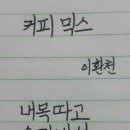 커피 믹스
이환천
내 목 따고